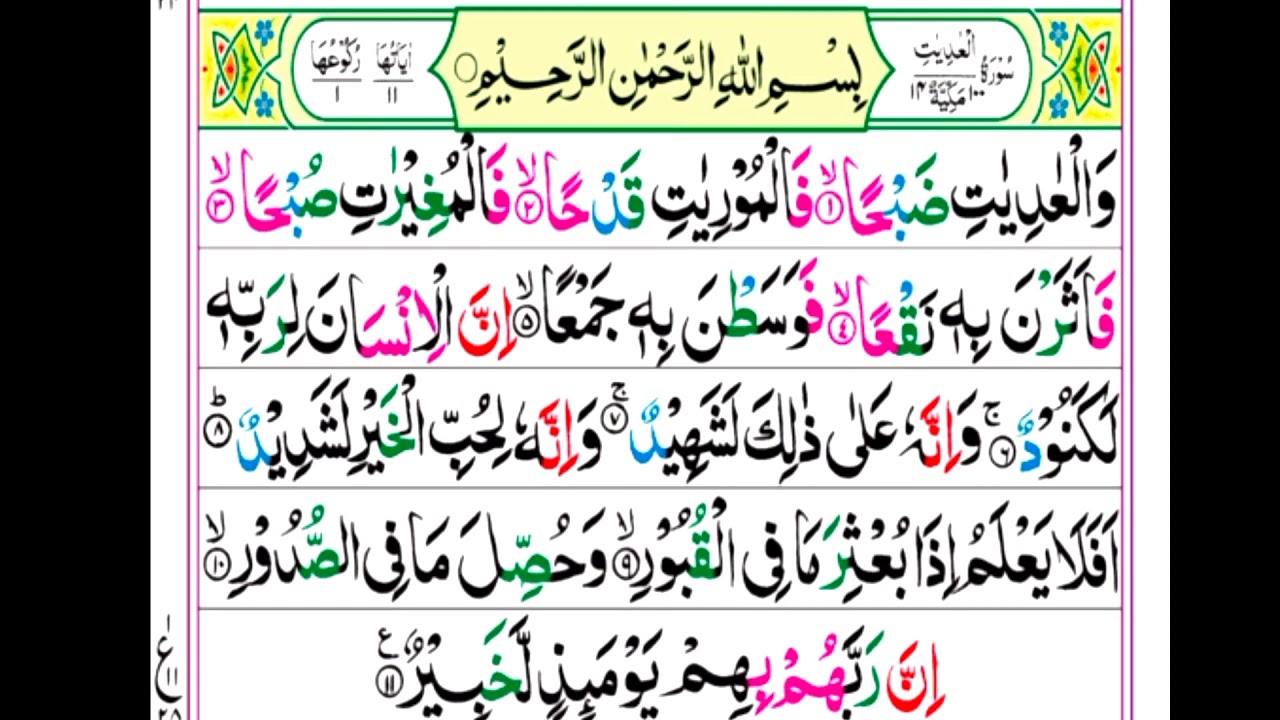 سُوْرَةُ الْعٰدِيٰتِ مَكِّيَّةٌ ١٠٠ ١٤
بِسْمِ اللّٰهِ الرَّحْمٰنِ الرَّحِيْمِ
اٰيَاتُهَا ١١ رُكُوْعُهَا ١
وَالْعٰدِيٰتِ ضَبْحًا ۙ‏﴿۱﴾ فَالْمُوْرِيٰتِ قَدْحًا ۙ‏﴿۲﴾ فَالْمُغِيْرٰتِ صُبْحًا ۙ‏﴿۳﴾
فَاَثَرْنَ بِهٖ نَقْعًا ۙ‏﴿۴﴾ فَوَسَطْنَ بِهٖ جَمْعًا ۙ‏﴿۵﴾ اِنَّ الْاِنْسَانَ لِرَبِّهٖ
لَكَنُوْدٌ ۚ‏﴿۶﴾ وَاِنَّهٗ عَلٰى ذٰلِكَ لَشَهِيْدٌ ۚ‏﴿۷﴾ وَاِنَّهٗ لِحُبِّ الْخَيْرِ لَشَدِيْدٌ ؕ‏﴿۸﴾
اَفَلَا يَعْلَمُ اِذَا بُعْثِرَ مَا فِى الْقُبُوْرِ ۙ‏﴿۹﴾ وَحُصِّلَ مَا فِى الصُّدُوْرِ ۙ‏﴿۱۰﴾
اِنَّ رَبَّهُمْ بِهِمْ يَوْمَىِٕذٍ لَّخَبِيْرٌ ﴿۱۱﴾ ع
ع ١ ١١ ٢٥